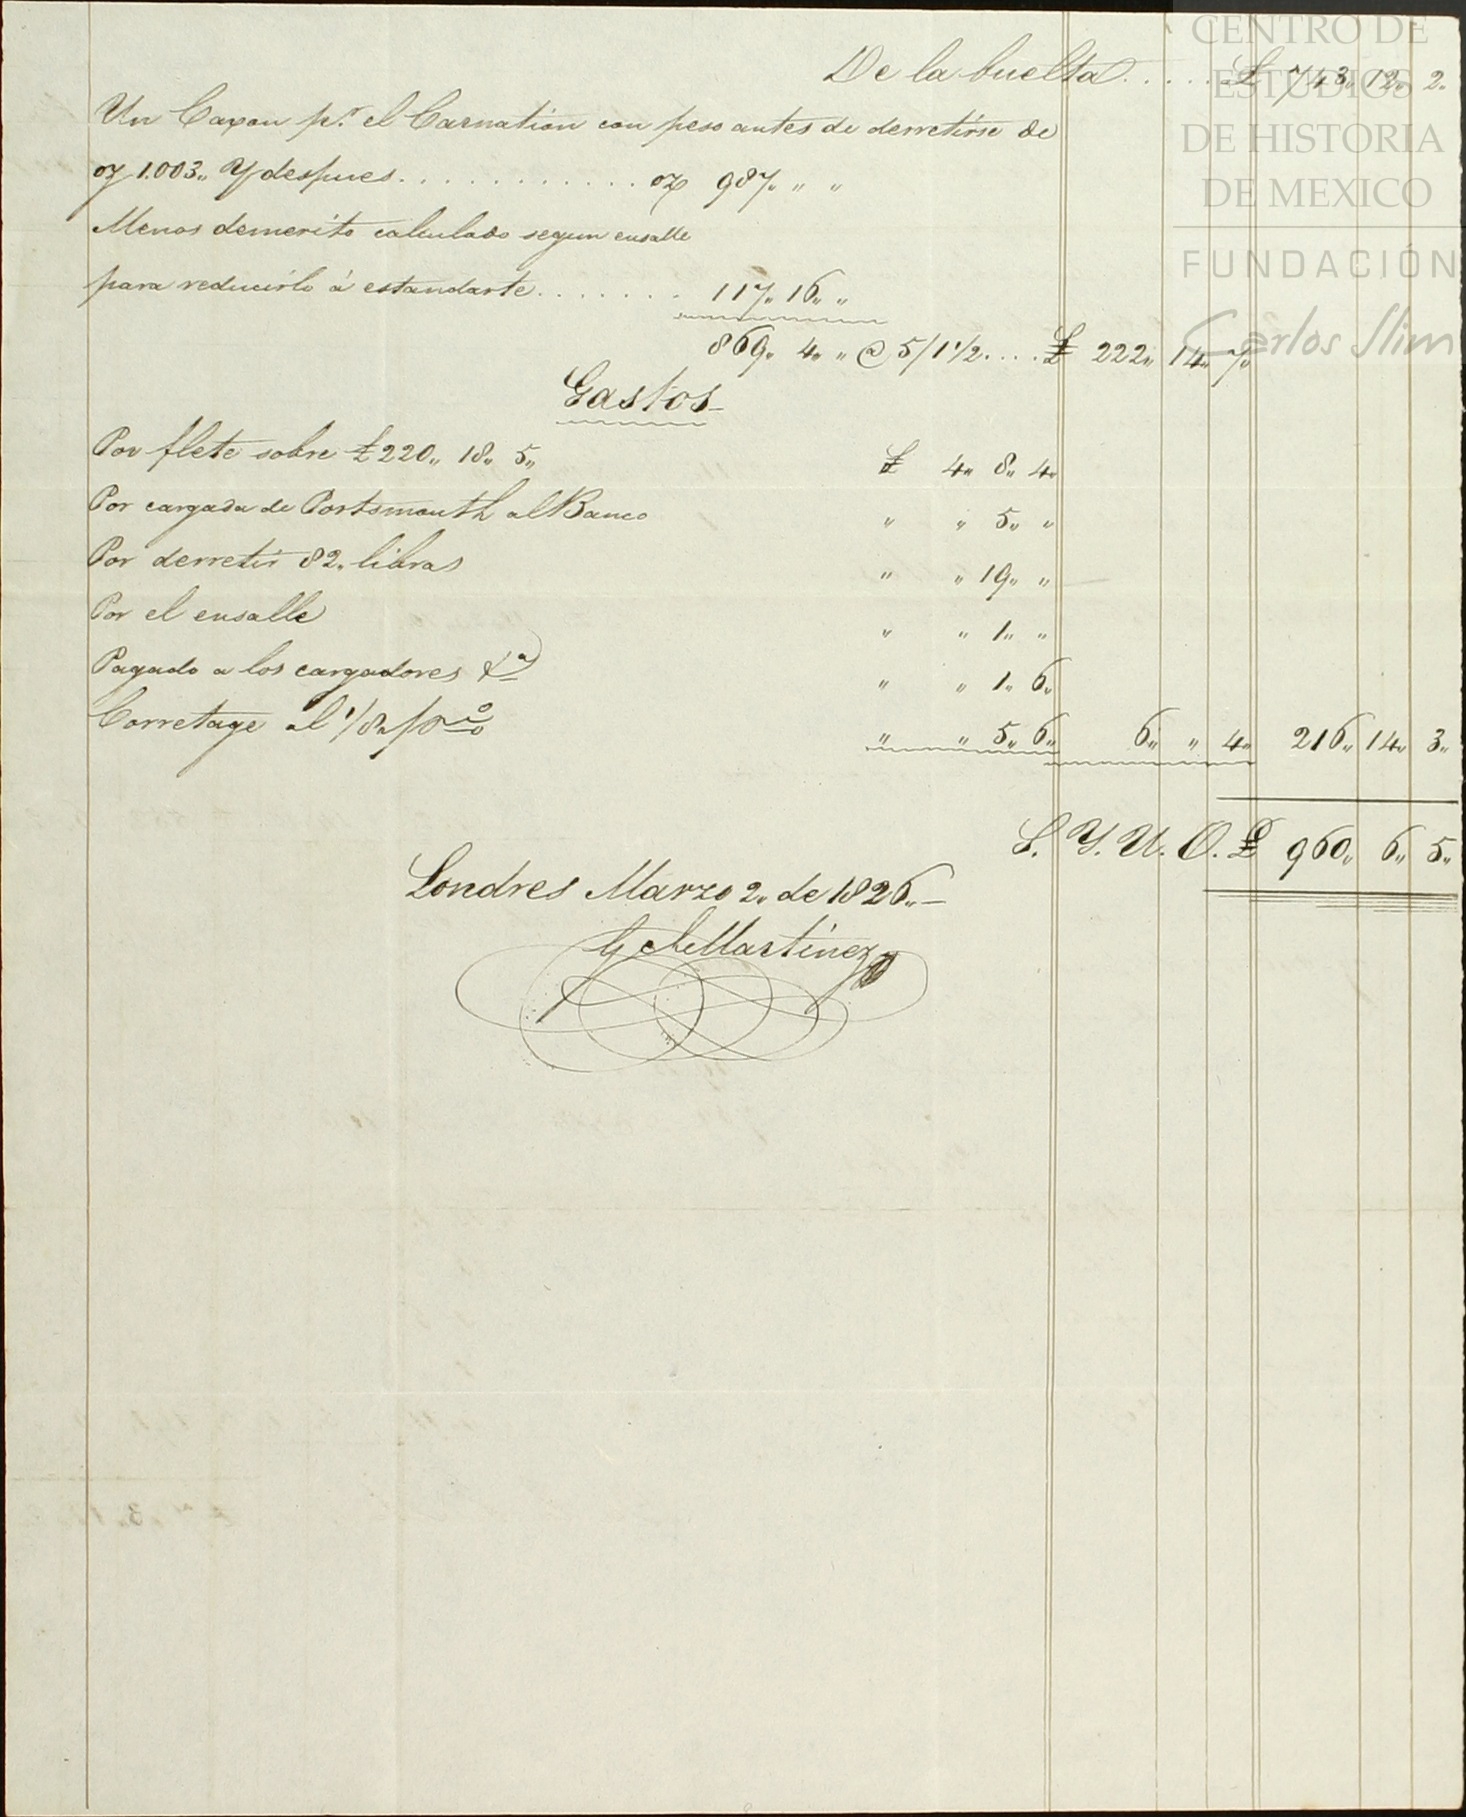 CENTRO DE
ESTUDIOS
DE HISTORIA
DE MEXICO
FUNDACIÓN
Carlos Slim
De la buelta . . . . . £ 743,, 12,, 2,,
Un Caxon pr. el Carnation con peso antes de derretirse de
oz 1.003,, Y despues. . . . . . . . . . . . oz 987,, ,, ,,
Menos demerito calculado segun ensalle
para reducirlo á estandarte. . . . . . . 117,, 16,, ,,
869,, 4,, ,, @ 5/1 1/2. . . . £ 222,, 14,, 7,,
Gastos
Por flete sobre £220,, 18,, 5,, £ 4,, 8,, 4,,
Por cargada de Portsmouth al Banco ,, ,, 5,, ,,
Por derretir 82,, libras ,, ,, 19,, ,,
Por el ensalle ,, ,, 1,, ,,
Pagado a los cargadores &a ,, ,, 1,, 6,,
Corretage al 1/8 p% ,, ,, 5,, 6,, 6,, ,, 4,, 216,, 14,, 3,,
S. Y. U. O. £ 960,, 6,, 5,,
Londres Marzo 2,, de 1826,,
Martinez